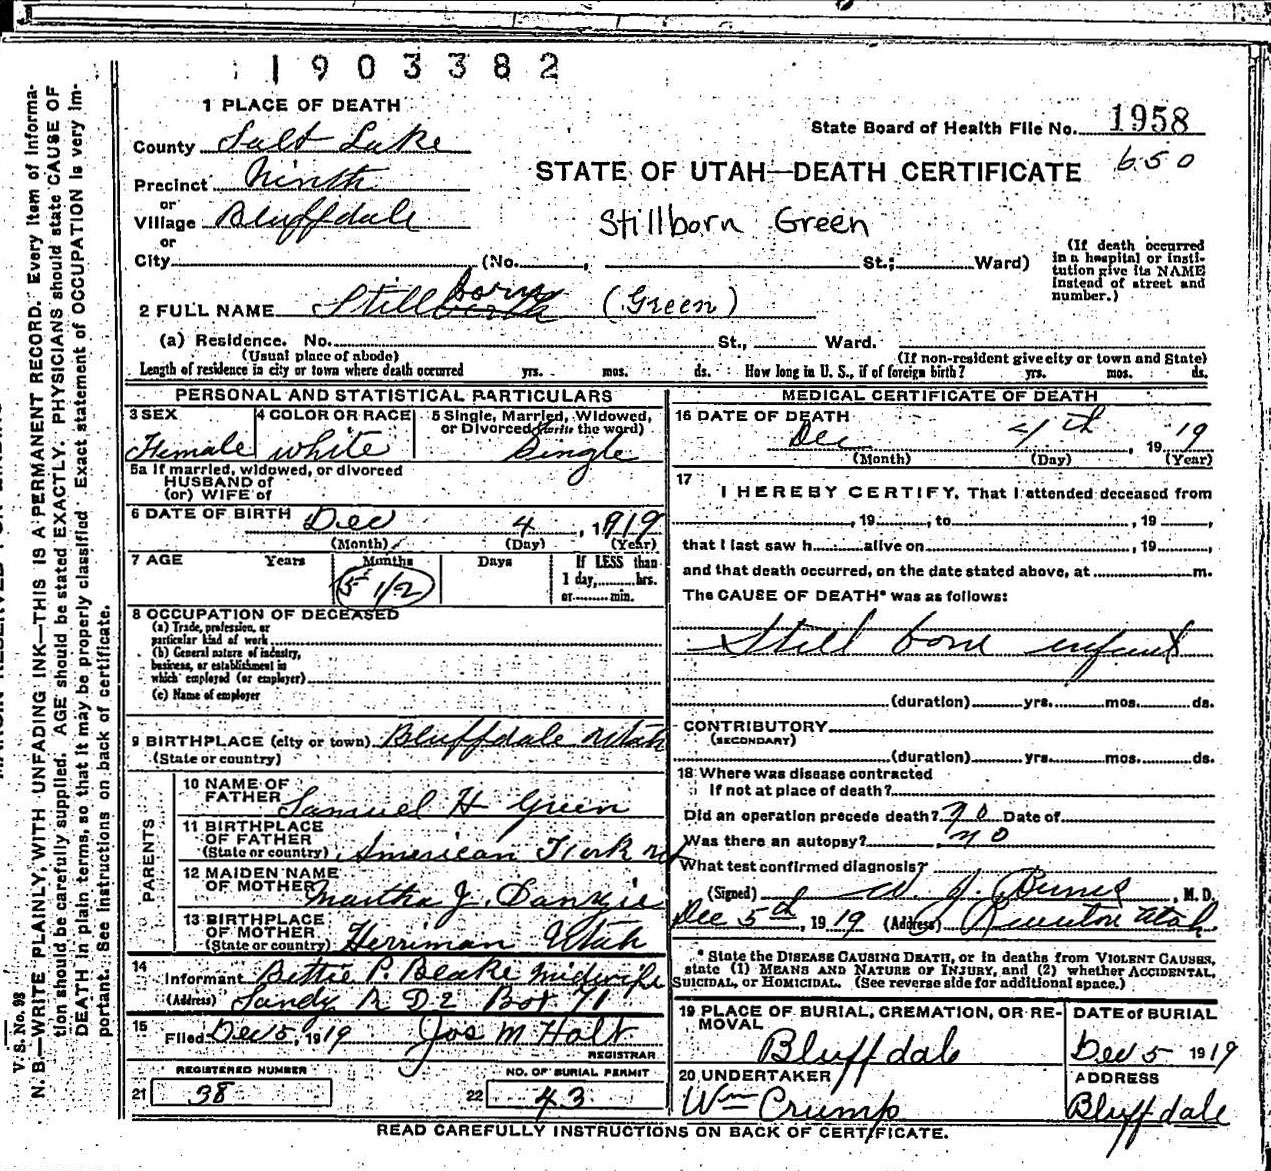 1903382
1 PLACE OF DEATH
State Board of Health File No. 1958
County Salt Lake
650
Precinct Ninth
STATE OF UTAH—DEATH CERTIFICATE
or
Village Bluffdale
Stillborn Green
or
City (No. , St.; Ward)
(If death occurred
in a hospital or insti-
tution give its NAME
instead of street and
number.)
2 FULL NAME Stillborn (Green)
(a) Residence. No. St., Ward.
(Usual place of abode) (If non-resident give city or town and State)
Length of residence in city or town where death occurred yrs. mos. ds. How long in U. S., if of foreign birth? yrs. mos. ds.
PERSONAL AND STATISTICAL PARTICULARS
3 SEX 4 COLOR OR RACE 5 Single, Married, Widowed,
or Divorced (write the word)
Female white Single
5a If married, widowed, or divorced
HUSBAND of
(or) WIFE of
6 DATE OF BIRTH Dec 4, 1919
(Month) (Day) (Year)
7 AGE Years Months Days If LESS than
1 day, hrs.
or min.
5 1/2
8 OCCUPATION OF DECEASED
(a) Trade, profession, or
particular kind of work
(b) General nature of industry,
business, or establishment in
which employed (or employer)
(c) Name of employer
9 BIRTHPLACE (city or town) Bluffdale Utah
(State or country)
PARENTS
10 NAME OF
FATHER Samuel H Green
11 BIRTHPLACE
OF FATHER
(State or country) American Fork
12 MAIDEN NAME
OF MOTHER Martha J. Danzie
13 BIRTHPLACE
OF MOTHER
(State or country) Herriman Utah
14
Informant Bettie P. Beake midwife
(Address) Sandy R D 2 Box 71
15
Filed Dec 5, 1919 Jos M Holt
REGISTRAR
REGISTERED NUMBER NO. OF BURIAL PERMIT
21 38 22 43
MEDICAL CERTIFICATE OF DEATH
16 DATE OF DEATH
Dec 4th, 1919
(Month) (Day) (Year)
17
I HEREBY CERTIFY, That I attended deceased from
, 19 , to , 19 ,
that I last saw h alive on , 19 ,
and that death occurred, on the date stated above, at m.
The CAUSE OF DEATH* was as follows:
Still born infant
(duration) yrs. mos. ds.
CONTRIBUTORY
(SECONDARY)
(duration) yrs. mos. ds.
18 Where was disease contracted
If not at place of death?
Did an operation precede death? no Date of
Was there an autopsy? no
What test confirmed diagnosis?
(Signed) W. J. , M. D.
Dec 5th, 1919 (Address) Riverton Utah
* State the DISEASE CAUSING DEATH, or in deaths from VIOLENT CAUSES,
state (1) MEANS AND NATURE OF INJURY, and (2) whether ACCIDENTAL,
SUICIDAL, or HOMICIDAL. (See reverse side for additional space.)
19 PLACE OF BURIAL, CREMATION, OR RE-
MOVAL
Bluffdale
DATE of BURIAL
Dec 5 1919
20 UNDERTAKER
Wm Crump
ADDRESS
Bluffdale
READ CAREFULLY INSTRUCTIONS ON BACK OF CERTIFICATE.
V. S. No. 98
N. B.—WRITE PLAINLY, WITH UNFADING INK—THIS IS A PERMANENT RECORD. Every item of informa-
tion should be carefully supplied. AGE should be stated EXACTLY. PHYSICIANS should state CAUSE OF
DEATH in plain terms, so that it may be properly classified. Exact statement of OCCUPATION is very im-
portant. See instructions on back of certificate.